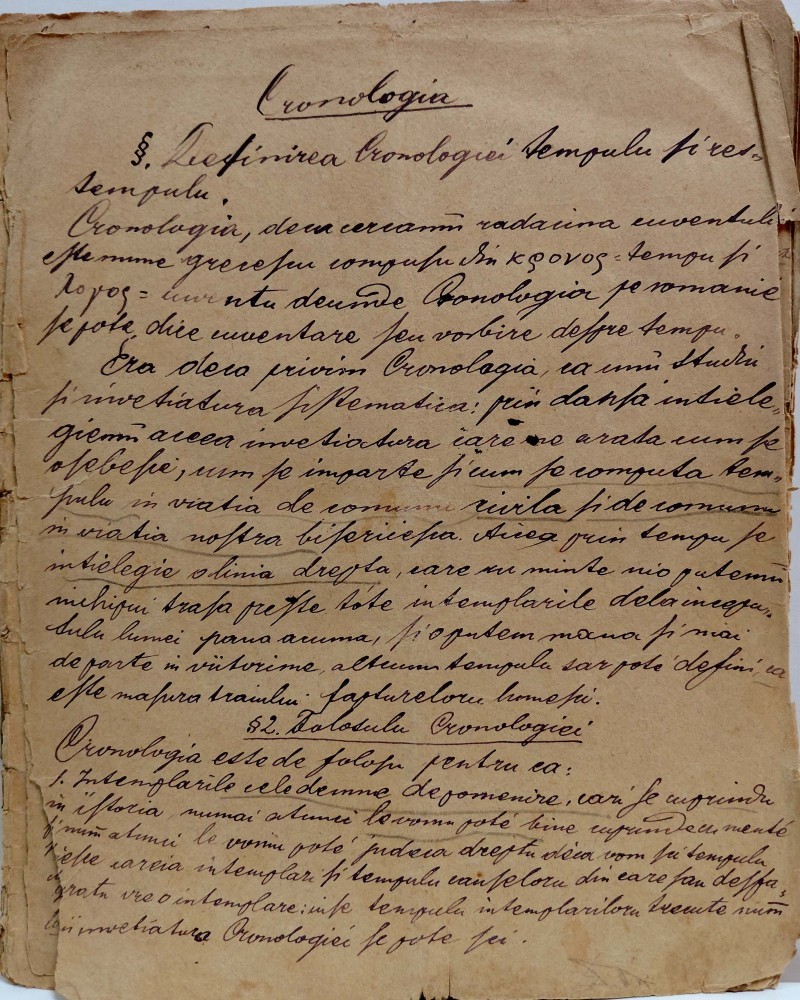 Cronologia
§. Definirea Cronologiei tempulu si res=
tempulu.
Cronologia, deca cercamu radacina cuventului
este nume grecescu compusu din κρονος = tempu si
λογος = cuventu deunde Cronologia pe romanie
se pote dice cuventare seu vorbire despre tempu.
Era deca privim Cronologia, ca unu studiu
si invetiatura sistematica: prin dansa intiele=
gemu aceea invetiatura care ne arata cum se
osebesce, cum se imparte si cum se computa tem=
pulu in viatia de comunu civila si de comunu
in viatia nostra bisericesca. Aicea prin tempu se
intielegie o linia drepta, care cu minte nio putemu
inchipui trasa preste tote intemplarile dela incepu=
tulu lumei pana acuma, si o putem mana si mai
departe in viitorime, altcum tempulu sar pote defini, ca
este masura traiului faptureloru lumesci.
§2. Folosulu Cronologiei
Cronologia este de folosu pentru ca:
1. Intemplarile cele demne de pomenire, cari se cuprindu
in istoria, numai atunci le vomu poté bine cuprinde cu mente
si numai atunci le vomu poté judeca dreptu déca vom sci tempulu
careia intemplari si tempulu causeloru din care sau desfa=
vreo intemplare: inse tempulu intemplariloru trecute numai
invetiatura Cronologiei se pote sci.